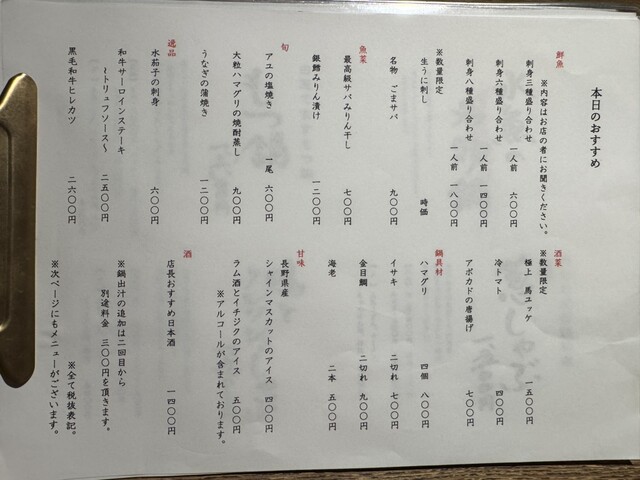 本日のおすすめ
※内容はお店の者にお聞きください。
鮮魚
刺身三種盛り合わせ 一人前 六〇〇円
刺身六種盛り合わせ 一人前 一四〇〇円
刺身八種盛り合わせ 一人前 一八〇〇円
※数量限定
生うに刺し 時価
名物 ごまサバ 九〇〇円
魚菜
最高級サバみりん干し 七〇〇円
銀鱈みりん漬け 一二〇〇円
旬
アユの塩焼き 一尾 六〇〇円
大粒ハマグリの焼酎蒸し 九〇〇円
うなぎの蒲焼き 一二〇〇円
逸品
水茄子の刺身 六〇〇円
和牛サーロインステーキ
～トリュフソース～ 二五〇〇円
黒毛和牛ヒレカツ 二六〇〇円
酒菜
※数量限定
極上 馬ユッケ 一五〇〇円
冷トマト 四〇〇円
アボカドの唐揚げ 七〇〇円
鍋具材
ハマグリ 四個 八〇〇円
イサキ 二切れ 七〇〇円
金目鯛 二切れ 九〇〇円
海老 二本 五〇〇円
甘味
長野県産
シャインマスカットのアイス 四〇〇円
ラム酒とイチジクのアイス 五〇〇円
※アルコールが含まれております。
酒
店長おすすめ日本酒 一四〇〇円
※鍋出汁の追加は二回目から
別途料金 三〇〇円を頂きます。
※全て税抜表記。
※次ページにもメニューがございます。